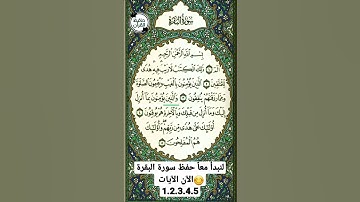 سُورَةُ البَقَرَةِ
بِسْمِ اللَّهِ الرَّحْمَٰنِ الرَّحِيمِ
الٓمٓ ۝ ذَٰلِكَ الْكِتَٰبُ لَا رَيْبَ فِيهِ هُدًى
لِّلْمُتَّقِينَ ۝ الَّذِينَ يُؤْمِنُونَ بِالْغَيْبِ وَيُقِيمُونَ الصَّلَوٰةَ
وَمِمَّا رَزَقْنَٰهُمْ يُنفِقُونَ ۝ وَالَّذِينَ يُؤْمِنُونَ بِمَا أُنزِلَ
إِلَيْكَ وَمَا أُنزِلَ مِن قَبْلِكَ وَبِالْآخِرَةِ هُمْ يُوقِنُونَ ۝
أُولَٰئِكَ عَلَىٰ هُدًى مِّن رَّبِّهِمْ وَأُولَٰئِكَ
هُمُ الْمُفْلِحُونَ ۝
لنبدأ معاً حفظ سورة البقرة
الآن الآيات
1.2.3.4.5